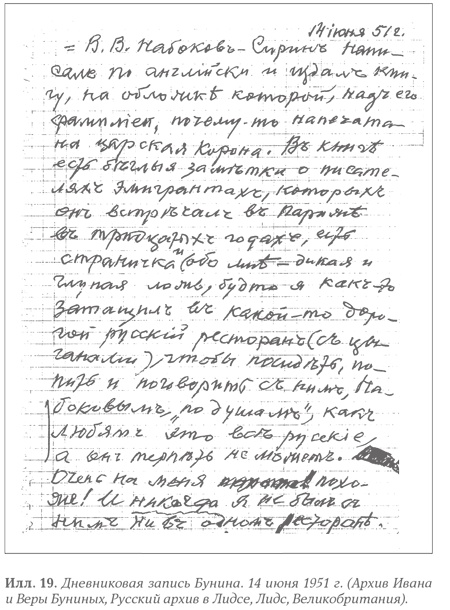 14 іюня 51 г.
= В. В. Набоковъ-Сиринъ напи-
салъ по англійски и издалъ кни-
гу, на обложкѣ которой, надъ его
фамиліей, почему-то напечата-
на царская корона. Въ книгѣ
есть бѣглыя замѣтки о писате-
ляхъ эмигрантахъ, которыхъ
онъ встрѣчалъ въ Парижѣ
въ тридцатыхъ годахъ, есть
страничка и обо мнѣ – дикая и
глупая ложь, будто я какъ-то
затащилъ въ какой-то доро-
гой русскій ресторанъ (съ цы-
ганами), чтобы посидѣть, по-
пить и поговорить съ нимъ, На-
боковымъ, „по душамъ", какъ
любятъ это всѣ русскіе,
а онъ терпѣть не можетъ.
Очень на меня похо-
же! И никогда я не былъ съ
нимъ ни въ одномъ ресторанѣ.
Илл. 19. Дневниковая запись Бунина. 14 июня 1951 г. (Архив Ивана
и Веры Буниных, Русский архив в Лидсе, Лидс, Великобритания).